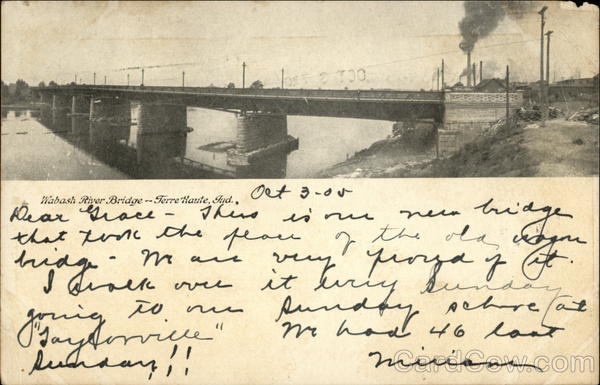 OCT 3
Wabash River Bridge -- Terre Haute, Ind.
Oct 3-05
Dear Grace - This is our new bridge
that took the place of the old wagon
bridge - We are very proud of it.
I walk over it every Sunday
going to our Sunday school at
"Taylorville" We had 46 last
Sunday!!!
CardCow.com